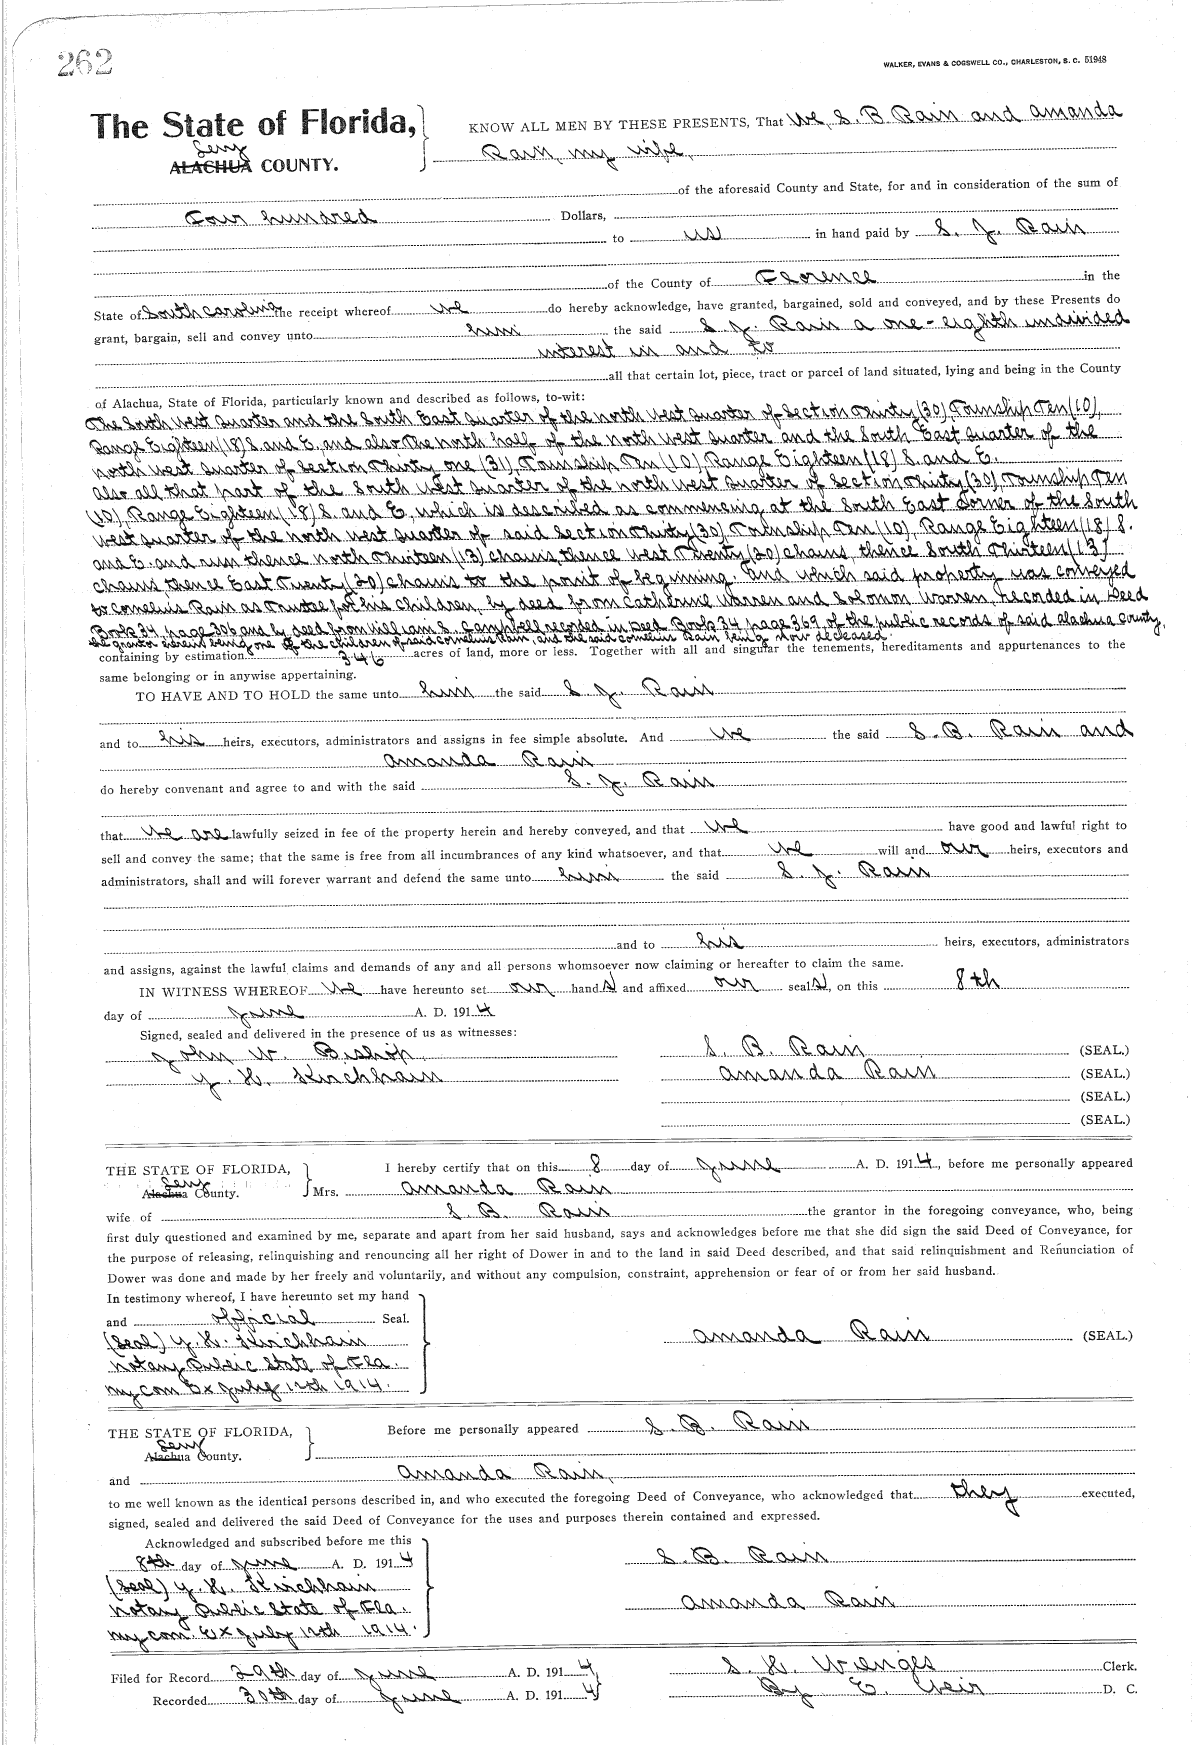 262
WALKER, EVANS & COGSWELL CO., CHARLESTON, S. C. 51948
The State of Florida, KNOW ALL MEN BY THESE PRESENTS, That We, S. B. Rain and Amanda
Levy
ALACHUA COUNTY. Rain, my wife,
of the aforesaid County and State, for and in consideration of the sum of
Four hundred Dollars,
to us in hand paid by S. J. Rain
of the County of Florence in the
State of South Carolina the receipt whereof we do hereby acknowledge, have granted, bargained, sold and conveyed, and by these Presents do
grant, bargain, sell and convey unto him the said S. J. Rain a one-eighth undivided
interest in and to
all that certain lot, piece, tract or parcel of land situated, lying and being in the County
of Alachua, State of Florida, particularly known and described as follows, to-wit:
The South West Quarter and the South East Quarter of the north West Quarter of Section Thirty (30) Township Ten (10),
Range Eighteen (18) S. and E. and also The north half of the north West Quarter and the South East Quarter of the
north West Quarter of Section Thirty one (31), Township Ten (10), Range Eighteen (18) S. and E.
also all that part of the South West Quarter of the north West Quarter of Section Thirty (30), Township Ten
(10), Range Eighteen (18) S. and E, which is described as commencing at the South East Corner of the South
West Quarter of the north West Quarter of said Section Thirty (30) Township Ten (10), Range Eighteen (18) S.
and E. and run thence north Thirteen (13) chains, thence West Twenty (20) chains, thence South Thirteen (13)
chains, thence East Twenty (20) chains to the point of beginning. and which said property was conveyed
to Cornelius Rain as Trustee for his Children, by deed from Catherine Warren and Solomon Warren, recorded in Deed
Book 34, page 306 and by deed from William S. Campbell recorded in Deed Book 34 page 369 of the public records of said Alachua County,
the grantor herein being one of the children of said Cornelius Rain, and the said Cornelius Rain being now deceased.
containing by estimation 346 acres of land, more or less. Together with all and singular the tenements, hereditaments and appurtenances to the
same belonging or in anywise appertaining.
TO HAVE AND TO HOLD the same unto him the said S. J. Rain
and to his heirs, executors, administrators and assigns in fee simple absolute. And we the said S. B. Rain and
Amanda Rain
do hereby convenant and agree to and with the said S. J. Rain
that we are lawfully seized in fee of the property herein and hereby conveyed, and that we have good and lawful right to
sell and convey the same; that the same is free from all incumbrances of any kind whatsoever, and that we will and our heirs, executors and
administrators, shall and will forever warrant and defend the same unto him the said S. J. Rain
and to his heirs, executors, administrators
and assigns, against the lawful claims and demands of any and all persons whomsoever now claiming or hereafter to claim the same.
IN WITNESS WHEREOF We have hereunto set our hand s and affixed our seal s, on this 8th
day of June A. D. 1914
Signed, sealed and delivered in the presence of us as witnesses:
John W. Bishop, S. B. Rain (SEAL.)
Y. H. Kirchhain Amanda Rain (SEAL.)
(SEAL.)
(SEAL.)
THE STATE OF FLORIDA, I hereby certify that on this 8 day of June A. D. 1914, before me personally appeared
Levy
Alachua County. Mrs. Amanda Rain
wife of S. B. Rain the grantor in the foregoing conveyance, who, being
first duly questioned and examined by me, separate and apart from her said husband, says and acknowledges before me that she did sign the said Deed of Conveyance, for
the purpose of releasing, relinquishing and renouncing all her right of Dower in and to the land in said Deed described, and that said relinquishment and Renunciation of
Dower was done and made by her freely and voluntarily, and without any compulsion, constraint, apprehension or fear of or from her said husband.
In testimony whereof, I have hereunto set my hand
and official Seal.
(Seal) Y. H. Kirchhain Amanda Rain (SEAL.)
Notary Public State of Fla.
My com. Ex July 12th 1914.
THE STATE OF FLORIDA, Before me personally appeared S. B. Rain
Levy
Alachua County.
and Amanda Rain,
to me well known as the identical persons described in, and who executed the foregoing Deed of Conveyance, who acknowledged that they executed,
signed, sealed and delivered the said Deed of Conveyance for the uses and purposes therein contained and expressed.
Acknowledged and subscribed before me this
8th day of June A. D. 1914 S. B. Rain
(Seal) Y. H. Kirchhain
Notary Public State of Fla. Amanda Rain
My com. Ex July 12th 1914.
Filed for Record 29th day of June A. D. 1914, S. H. Wienges Clerk.
Recorded 30th day of June A. D. 1914 By E. Weir D. C.